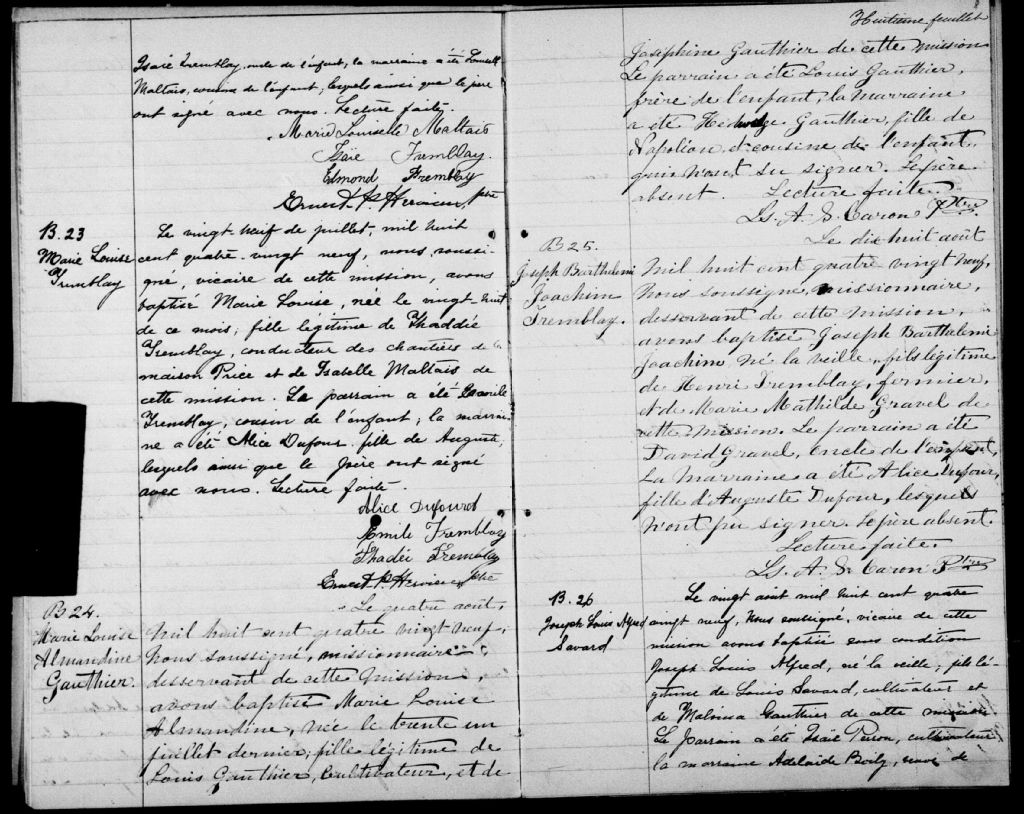 Isaïe Tremblay, oncle de l'enfant, la marraine a été Louiselle
Maltais, cousine de l'enfant, lesquels ainsi que le père
ont signé avec nous. Lecture faite.
Marie Louiselle Maltais
Isaïe Tremblay.
Edmond Tremblay
Ernest P. Hervieux, ptre
B. 23
Marie Louise
Tremblay
Le vingt neuf de juillet, mil huit
cent quatre-vingt neuf, nous, soussi-
gné, vicaire de cette mission, avons
baptisé Marie Louise, née le vingt huit
de ce mois, fille légitime de Thaddée
Tremblay, conducteur des chantiers de la
maison Price et de Isabelle Maltais de
cette mission. Le parrain a été
Tremblay, cousin de l'enfant; la marrai-
ne a été Alice Dufour fille de Auguste,
lesquels ainsi que le père ont signé
avec nous. Lecture faite.
Alice Dufourd
Emile Tremblay
Thadée Tremblay
Ernest P. Hervieux, ptre
B 24.
Marie Louise
Almandine
Gauthier.
Le quatre août,
mil huit cent quatre vingt neuf,
nous soussigné, missionnaire
desservant de cette mission,
avons baptisé Marie Louise
Almandine, née le trente un
juillet dernier, fille légitime de
Louis Gauthier, cultivateur, et de
Huitième feuillet
Joséphine Gauthier de cette mission
Le parrain a été Louis Gauthier,
frère de l'enfant, la marraine
a été Hedwidge Gauthier, fille de
Napoléon et cousine de l'enfant,
qui n'ont su signer. Le père
absent. Lecture faite.
Ls. A. S. Caron Ptre.
B 25.
Joseph Barthelemi
Joachim
Tremblay.
Le dix huit août
mil huit cent quatre vingt neuf,
nous soussigné, missionnaire,
desservant de cette mission,
avons baptisé Joseph Barthelemi
Joachim né la veille, fils légitime
de Henri Tremblay, fermier,
et de Marie Mathilde Gravel de
cette mission. Le parrain a été
David Gravel, oncle de l'enfant,
La marraine a été Alice Dufour,
fille d'Auguste Dufour, lesquels
n'ont pu signer. Le père absent.
Lecture faite.
Ls. A. S. Caron Ptre
B. 26
Joseph Louis Alfred
Savard
Le vingt aout mil huit cent quatre
vingt neuf, nous soussigné, vicaire de cette
mission avons baptisé sous condition
Joseph Louis Alfred, né la veille, fils lé-
gitime de Louis Savard, cultivateur et
de Malvina Gauthier de cette mission
Le parrain a été Isaïe Perron, cultivateur
la marraine Adelaïde Boily, veuve de